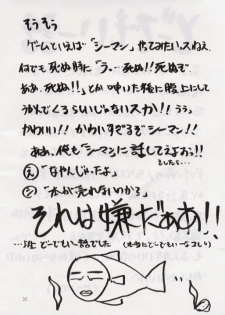 そうそう
ゲームといえば「シーマン」やってみたいスねぇ
何でも死ぬ時に「う、…死ぬ!!死ぬぞ
ああ、死ぬ!!」とか呟いた後に腹上にして
うかんでくるらしいじゃないスか!!うぅ
かわいい!!かわいすぎるぞシーマン!!
ああ、俺も「シーマンに話してえよぉっ!!
そしたら…
「なやんじゃだよ」
「本が売れないのかる」
それは嫌だああ!!
…とどーでもいー話でした(本当にどーでもいーなコレ)